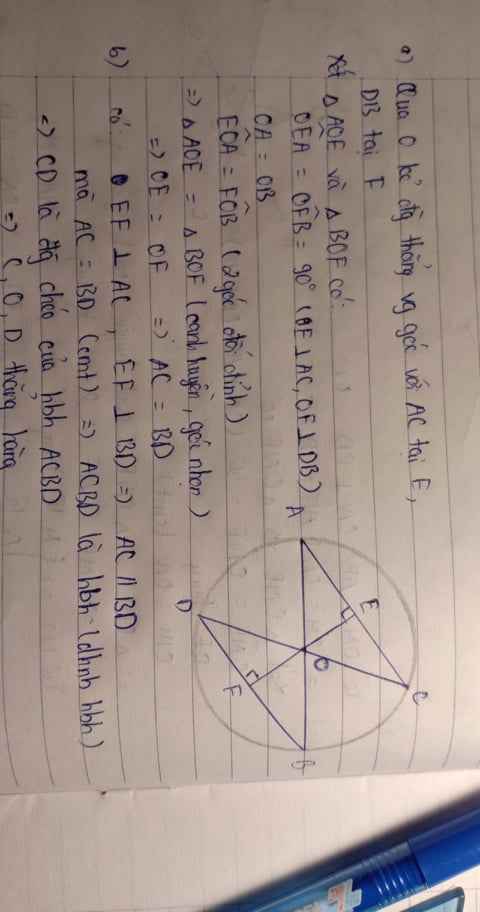 a) Qua O kẻ đg thẳng vg góc với AC tại E,
DB tại F
Xét Δ AOE và Δ BOF có:
OEA = OFB = 90° (OE ⊥ AC, OF ⊥ DB)
OA = OB
EOA = FOB (2 góc đối đỉnh)
=> Δ AOE = Δ BOF (cạnh huyền, góc nhọn)
=> OE = OF => AC = BD
b) Có: EF ⊥ AC, EF ⊥ BD => AC // BD
mà AC = BD (cmt) => ACBD là hbh (dhnb hbh)
=> CD là đg chéo của hbh ACBD
=> C, O, D thẳng hàng
A
E
C
D
O
F
B